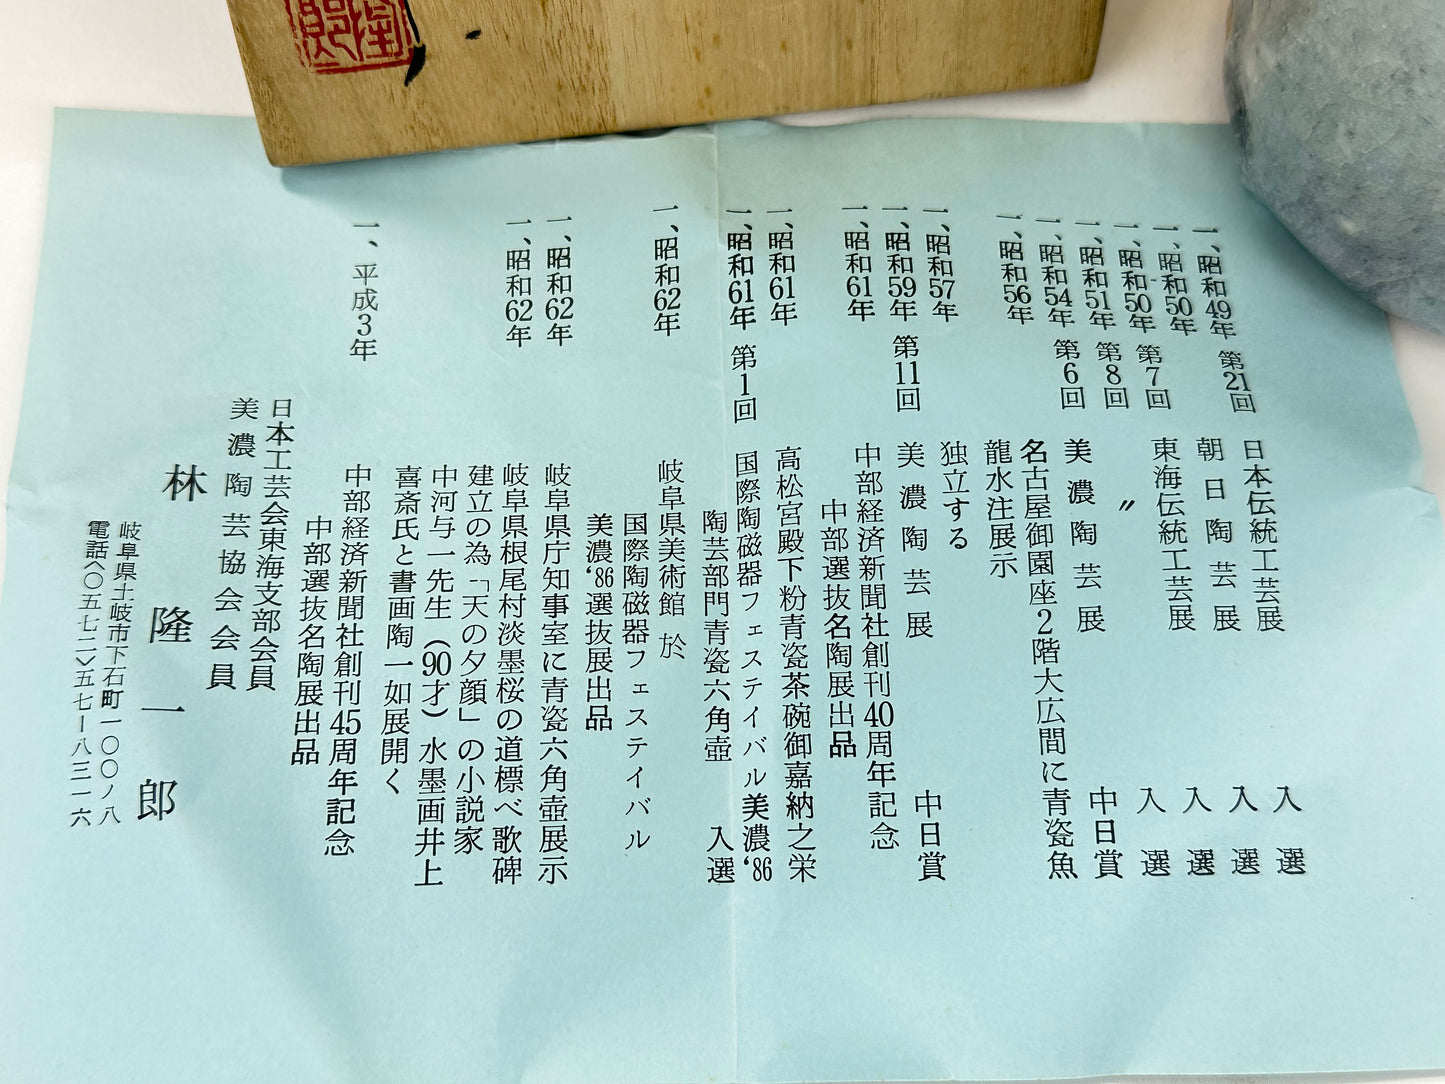 一、昭和49年 第21回 日本伝統工芸展 入選
一、昭和50年 朝日陶芸展 入選
一、昭和50年 第7回 東海伝統工芸展 入選
一、昭和51年 第8回 〃 入選
一、昭和54年 第6回 美濃陶芸展 中日賞
一、昭和56年 名古屋御園座2階大広間に青瓷魚
龍水注展示
一、昭和57年 独立する
一、昭和59年 第11回 美濃陶芸展 中日賞
一、昭和61年 中部経済新聞社創刊40周年記念
中部選抜名陶展出品
一、昭和61年 高松宮殿下粉青瓷茶碗御嘉納之栄
一、昭和61年 第1回 国際陶磁器フェスティバル美濃'86
陶芸部門青瓷六角壺 入選
一、昭和62年 岐阜県美術館 於
国際陶磁器フェスティバル
美濃'86選抜展出品
一、昭和62年 岐阜県庁知事室に青瓷六角壺展示
一、昭和62年 岐阜県根尾村淡墨桜の道標べ歌碑
建立の為「天の夕顔」の小説家
中河与一先生（90才）水墨画井上
喜斎氏と書画陶一如展開く
一、平成3年 中部経済新聞社創刊45周年記念
中部選抜名陶展出品
日本工芸会東海支部会員
美濃陶芸協会会員
林隆一郎
岐阜県土岐市下石町一〇〇ノ八
電話〈〇五七二〉五七ー八三一六
隆
郎